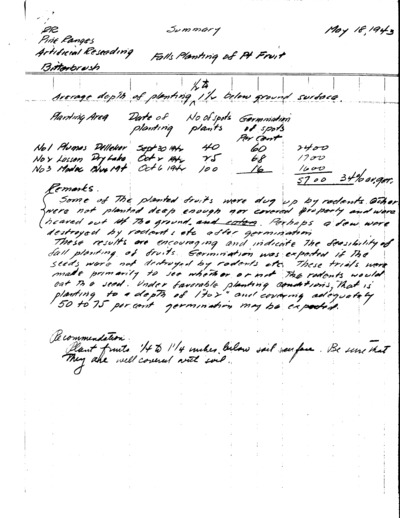 Summary
May 18, 1943
Pine Ranges
Artificial Reseeding
Bitterbrush
Falls Planting of Pt Fruit
1/2 to
Average depth of planting 1 1/2 below ground surface.
Planting Area Date of planting No of spots plants Germination of spots Per Cent
No 1 Sept 30 1942 40 60 2400
No 2 Lassen Dry Lake Oct 2 1942 25 68 1700
No 3 Modoc Oct 6 1942 100 16 1600
5700 34% aver.
Remarks.
Some of the planted fruits were dug up by rodents. Other
were not planted deep enough nor covered properly and were
heaved out of the ground. and eaten. Perhaps a few were
destroyed by rodents etc after germination
These results are encouraging and indicate the feasibility of
fall planting of fruits. Germination was expected if the
seeds were not destroyed by rodents etc. These trials were
made primarily to see whether or not the rodents would
eat the seed. Under favorable planting conditions, that is
planting to a depth of 1 to 2" and covering adequately
50 to 75 per cent germination may be expected.
Recommendation.
Plant fruits 1/4 to 1 1/4 inches below soil surface. Be sure that
they are well covered with soil.